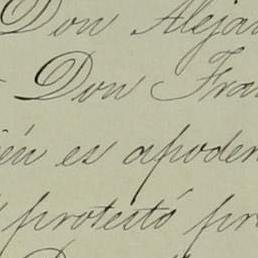 Don Aleja
Don Fra
én es apoder
protestó pr